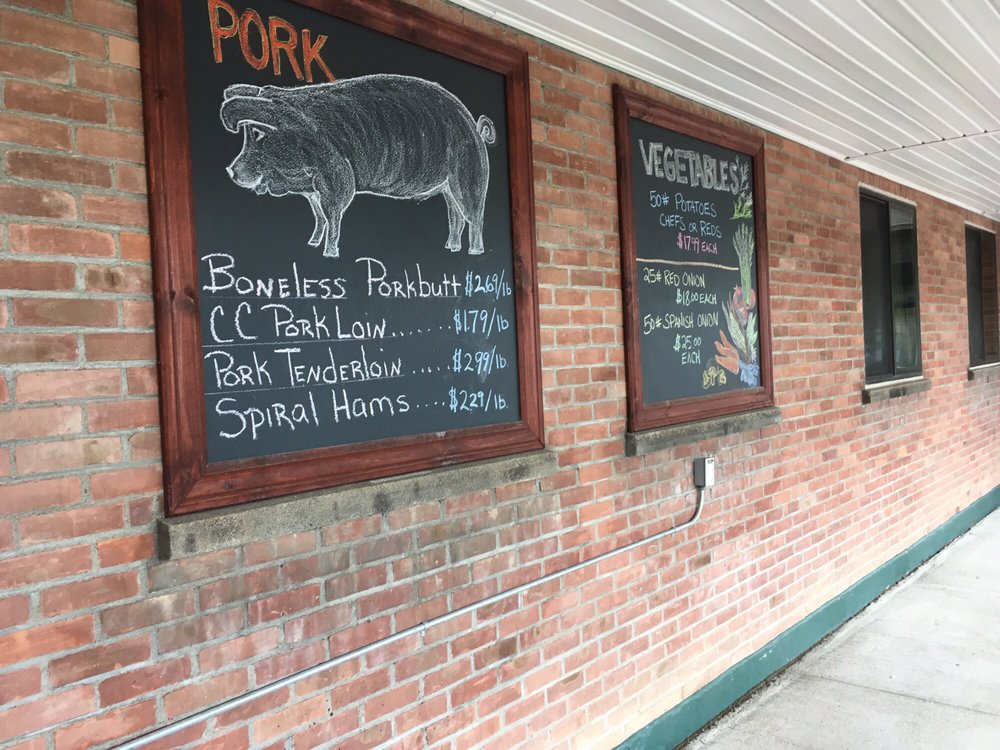 PORK
Boneless Porkbutt $2.69/lb
CC Pork Loin....... $1.79/lb
Pork Tenderloin ..... $2.99/lb
Spiral Hams .... $2.29/lb.
VEGETABLES
50# POTATOES
CHEFS OR REDS
$17.99 EACH
25# RED ONION
$18.00 EACH
50# SPANISH ONION
$25.00
EACH